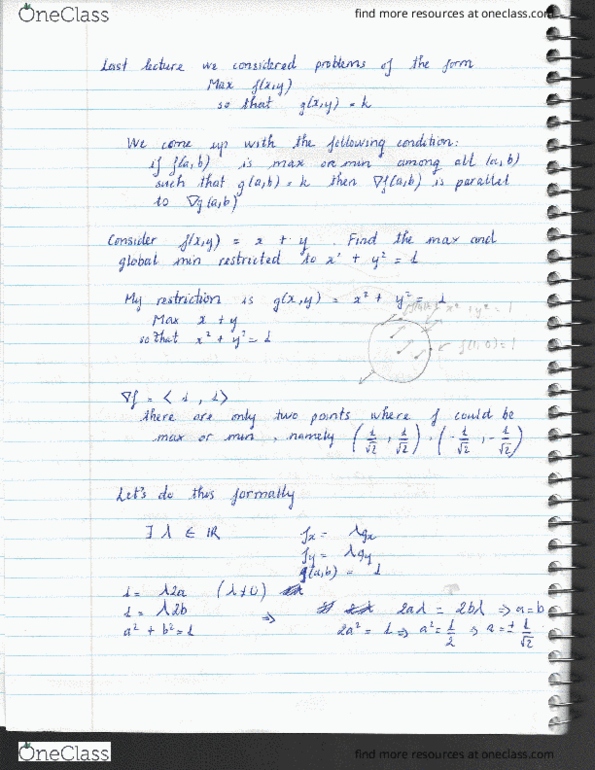 OneClass
find more resources at oneclass.com
Last lecture we considered problems of the form
Max f(x,y)
so that g(x,y) = k
We come up with the following condition:
if f(a,b) is max or min among all (a,b)
such that g(a,b) = k then ∇f(a,b) is parallel
to ∇g(a,b)
Consider f(x,y) = x + y . Find the max and
global min restricted to x² + y² = 1
My restriction is g(x,y) = x² + y² = 1
x² + y² = 1
Max x + y
so that x² + y² = 1
f(1,0) = 1
∇f = < 1 , 1 >
there are only two points where f could be
max or min , namely (1/√2 , 1/√2) , (-1/√2 , -1/√2)
Let's do this formally
∃ λ ∈ IR fx = λgx
fy = λgy
g(a,b) = 1
1 = λ2a (λ≠0)
1 = λ2b ⇒ 2aλ = 2bλ ⇒ a=b
a² + b² = 1 2a² = 1 ⇒ a² = 1/2 ⇒ a = ± 1/√2
OneClass
find more resources at oneclass.com